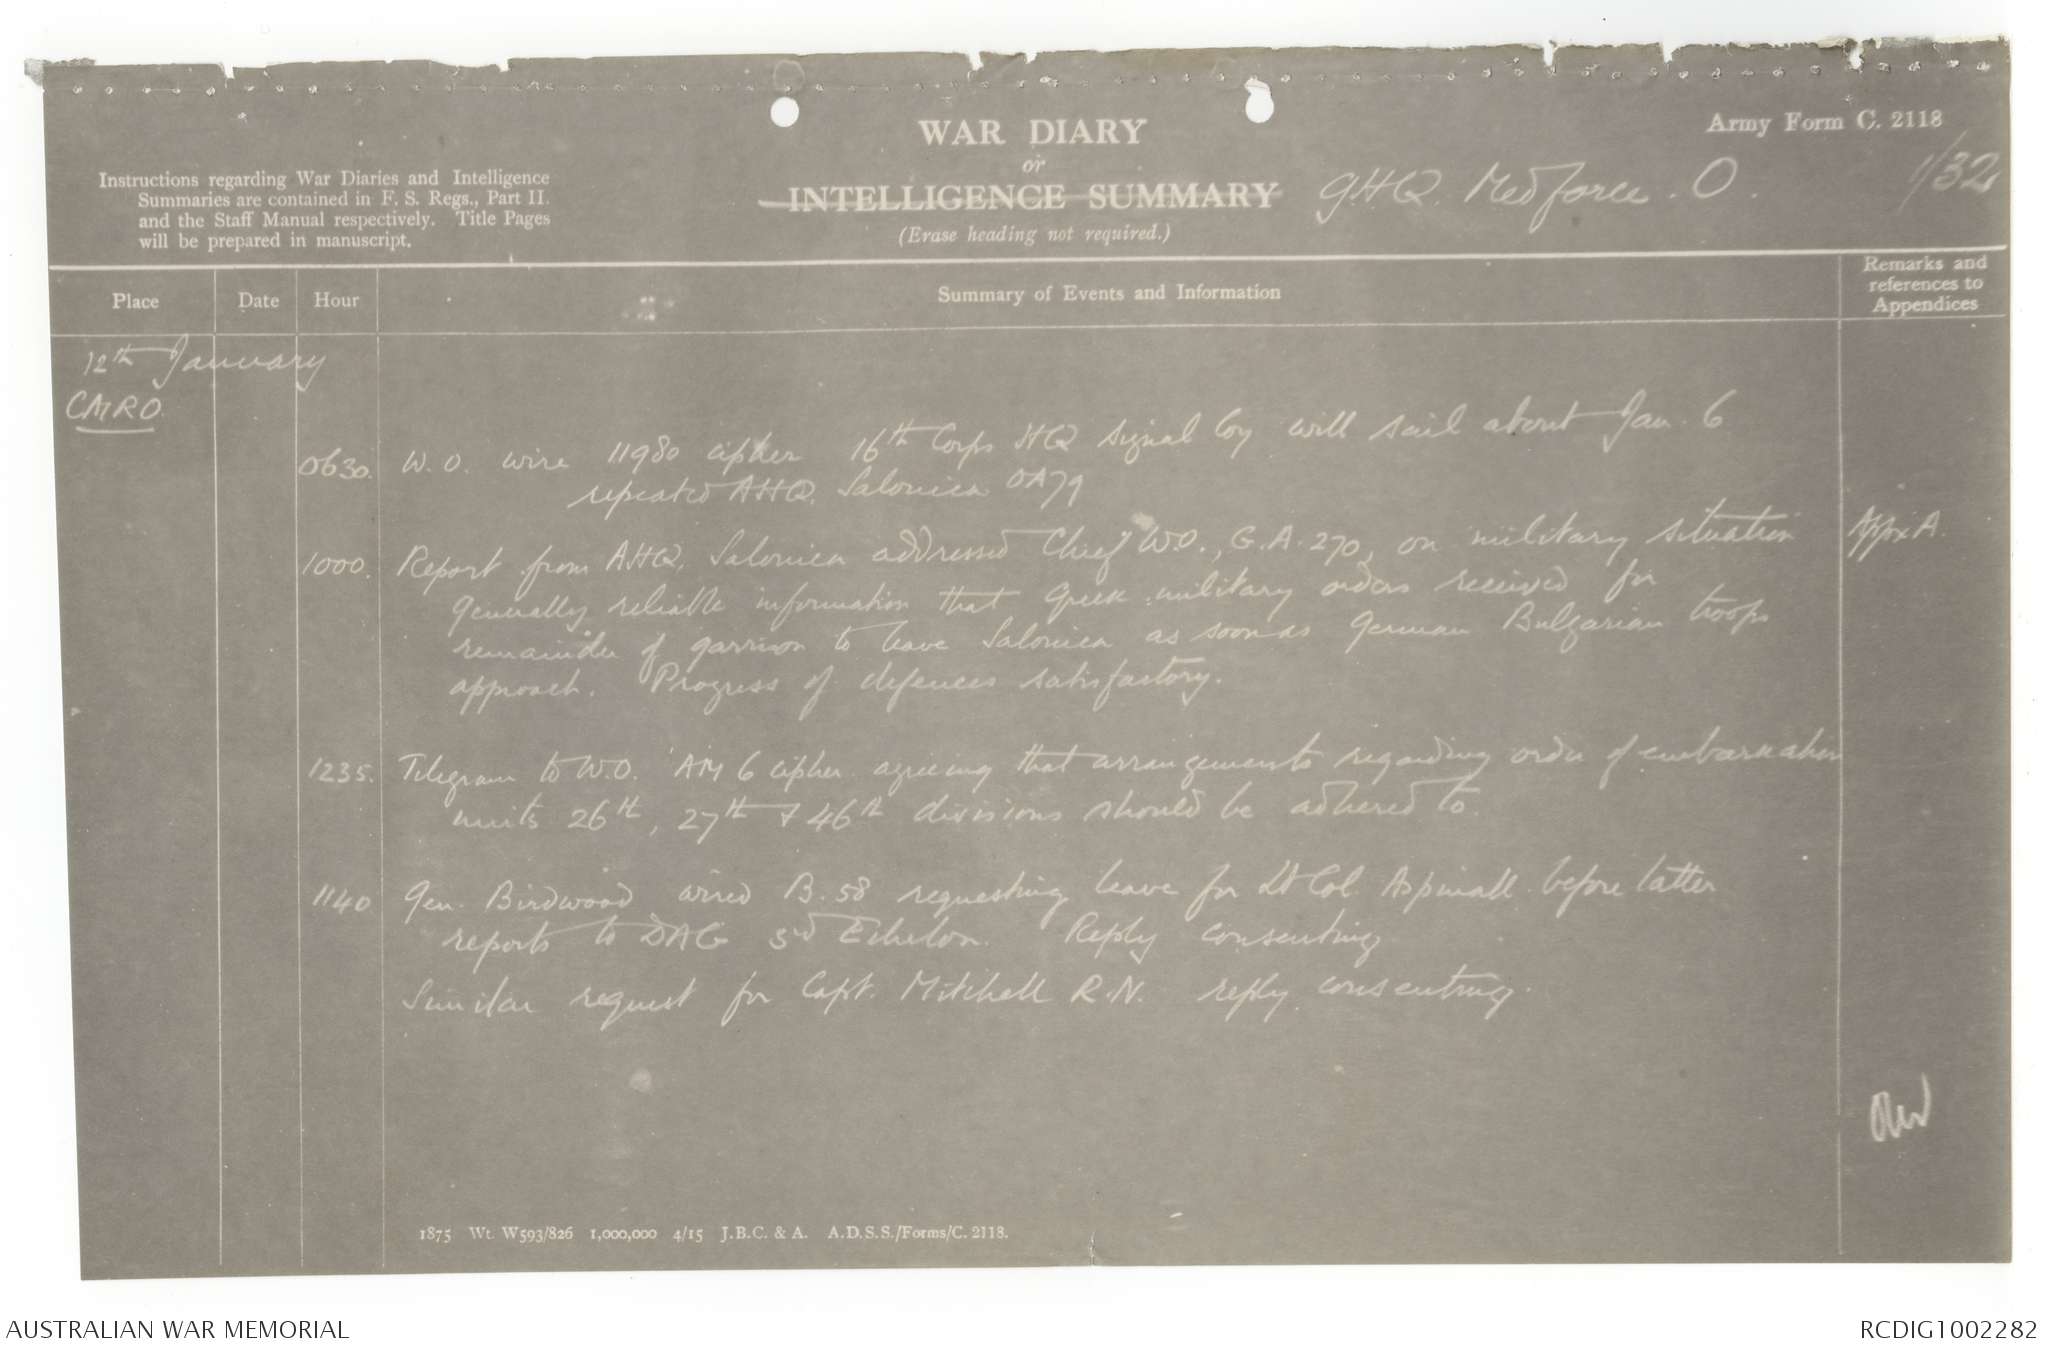 Army Form C. 2118
WAR DIARY
or
INTELLIGENCE SUMMARY
(Erase heading not required.)
G.H.Q. Medforce. O.
1/32
Instructions regarding War Diaries and Intelligence
Summaries are contained in F. S. Regs., Part II.
and the Staff Manual respectively. Title Pages
will be prepared in manuscript.
Place
Date
Hour
Summary of Events and Information
Remarks and
references to
Appendices
12th January
CAIRO
0630. W. O. wire 11980 cipher 16th Corps HQ Signal Coy will sail about Jan. 6
repeated AHQ. Salonica OA79
1000. Report from AHQ. Salonica addressed Chief W.O., G.A. 270, on military situation Appx A.
generally reliable information that Greek military orders received for
remainder of garrison to leave Salonica as soon as German Bulgarian troops
approach. Progress of defences satisfactory.
1235. Telegram to W.O. AM 6 cipher agreeing that arrangements regarding order of embarkation
units 26th, 27th & 46th divisions should be adhered to.
1140 Gen. Birdwood wired B.58 requesting leave for Lt Col. Aspinall before latter
reports to DAG 3rd Echelon. Reply consenting
Similar request for Capt. Mitchell R.N. reply consenting.
1875 Wt. W593/826 1,000,000 4/15 J.B.C. & A. A.D.S.S./Forms/C. 2118.
AUSTRALIAN WAR MEMORIAL
RCDIG1002282